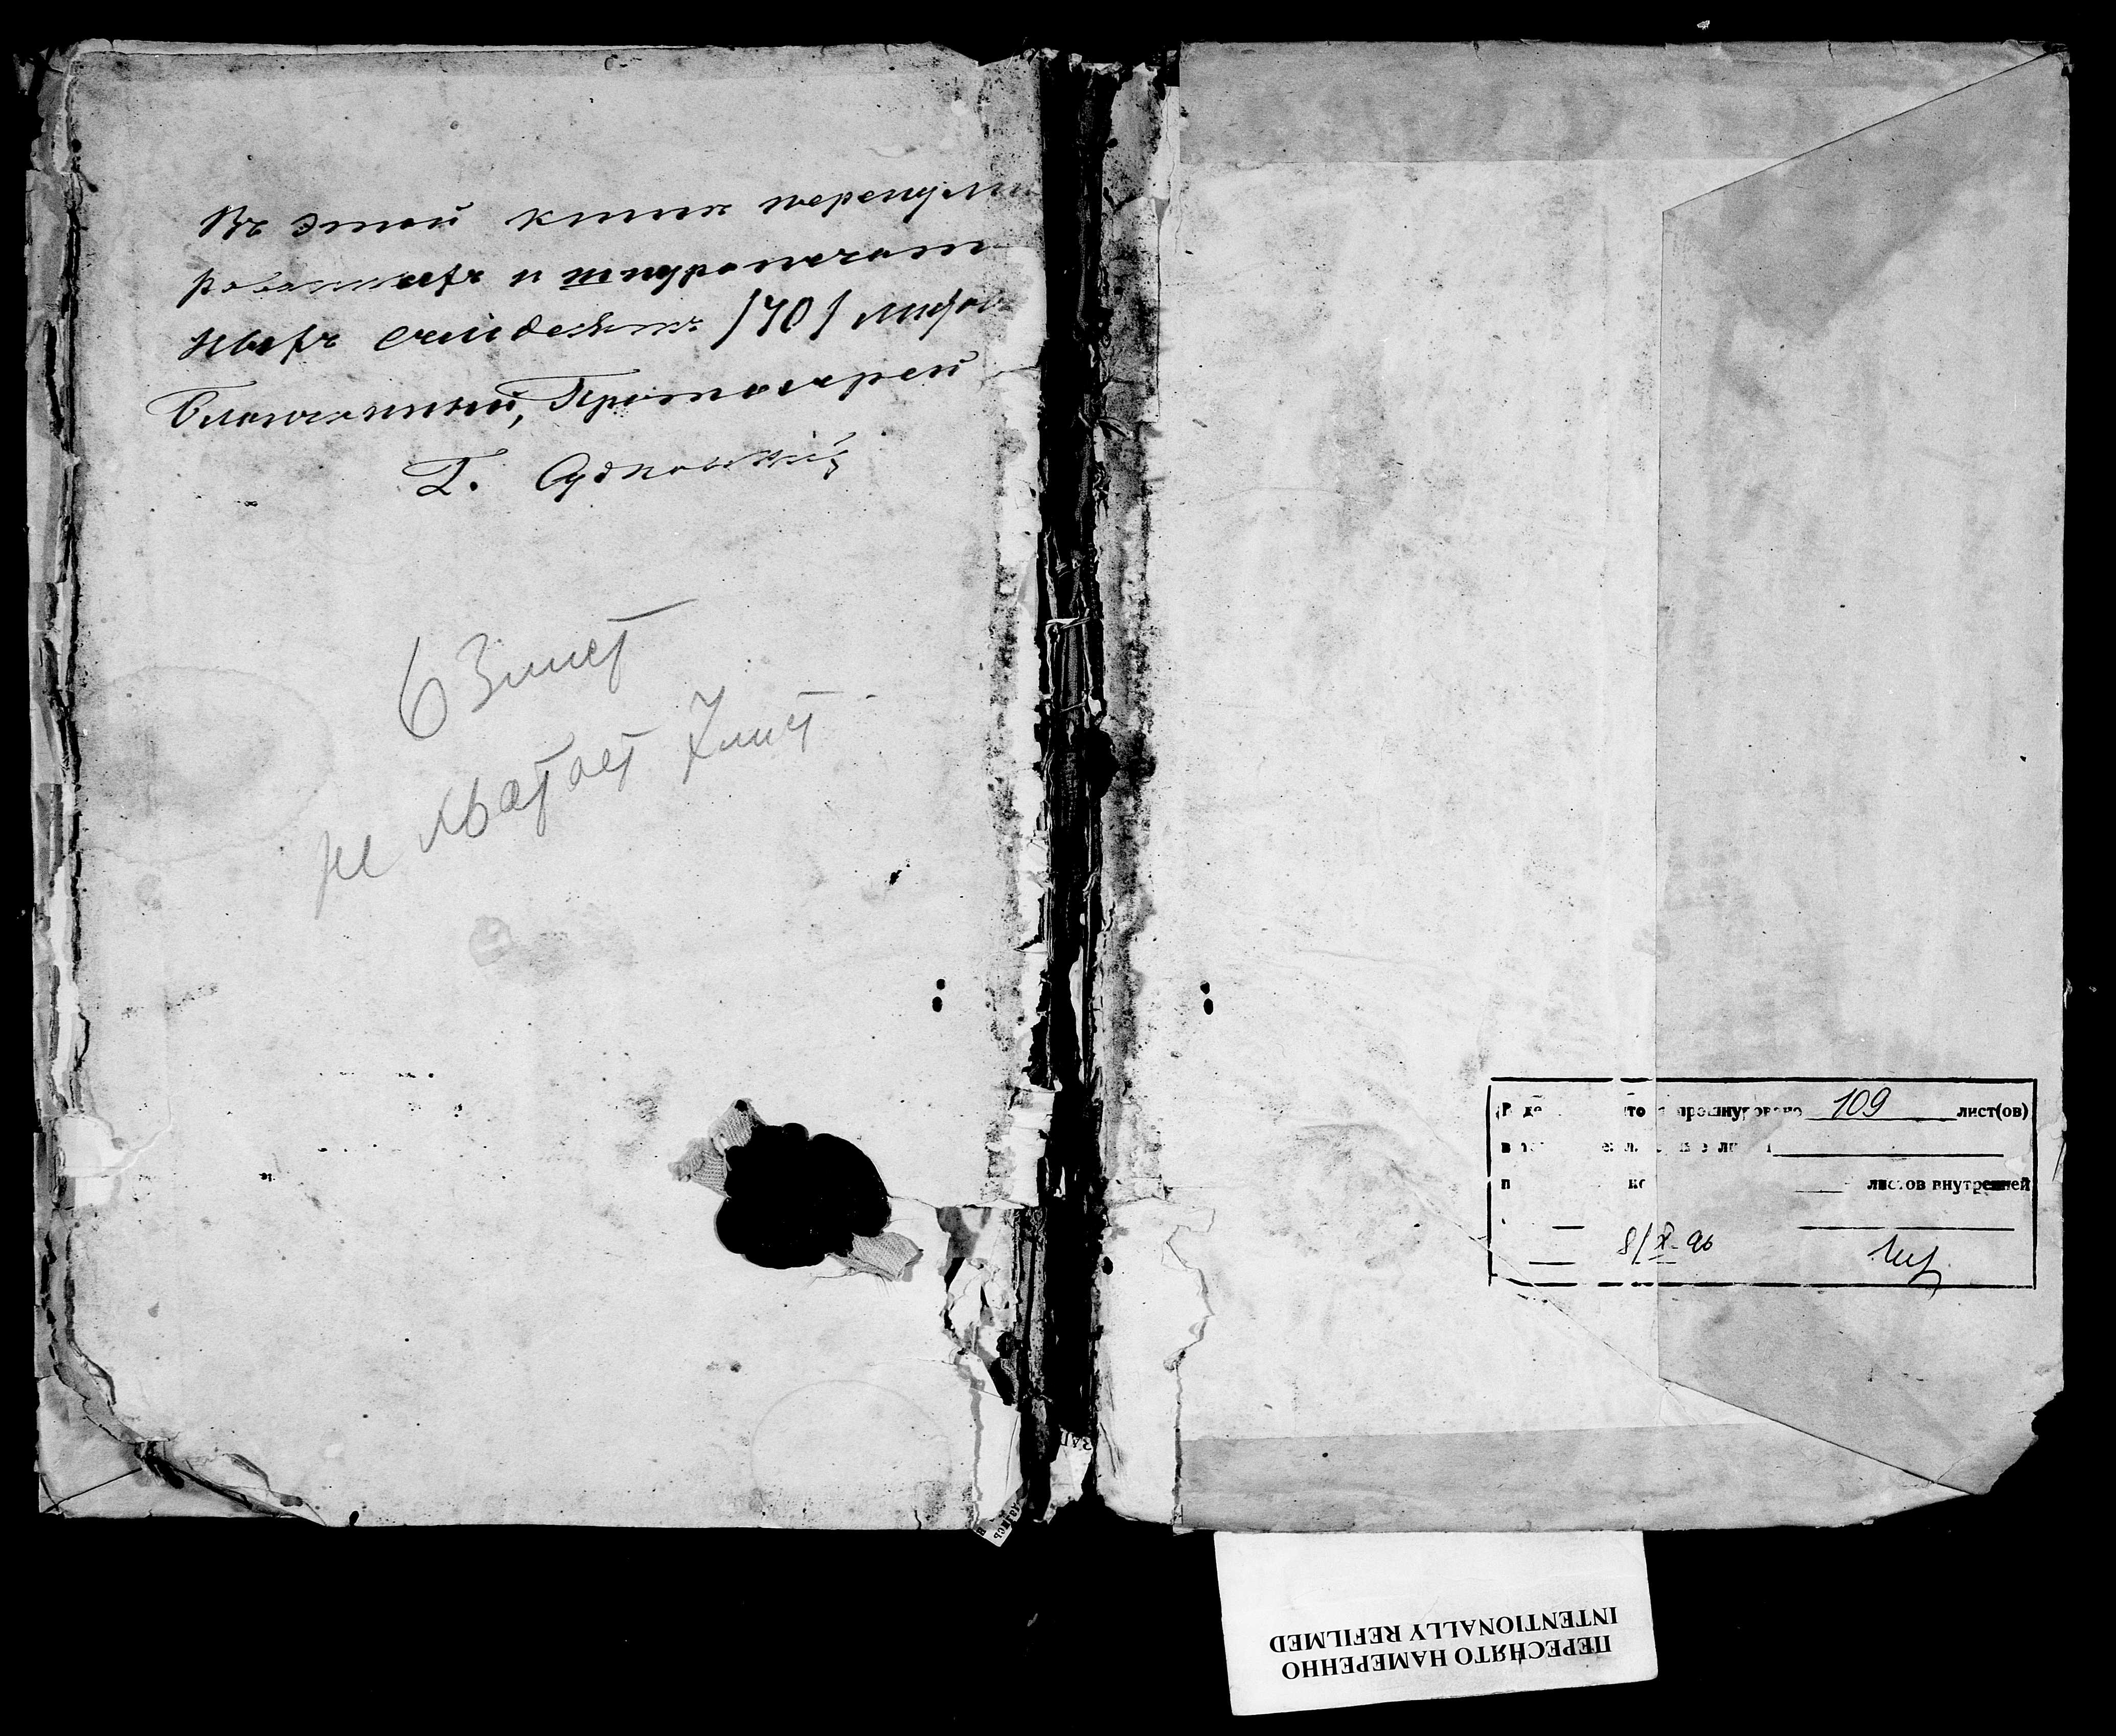 Въ этой книгѣ перенуме
рованныхъ и шнуропечат
ныхъ семьдесятъ /70/ листовъ
Благочинный, Протоіерей
Г. Судковскій
63 лист
не хватает 7 лист
прошнуровано 109 лист(ов)
листов внутренней
8/X-96
ПЕРЕСНЯТО НАМЕРЕННО
INTENTIONALLY REFILMED